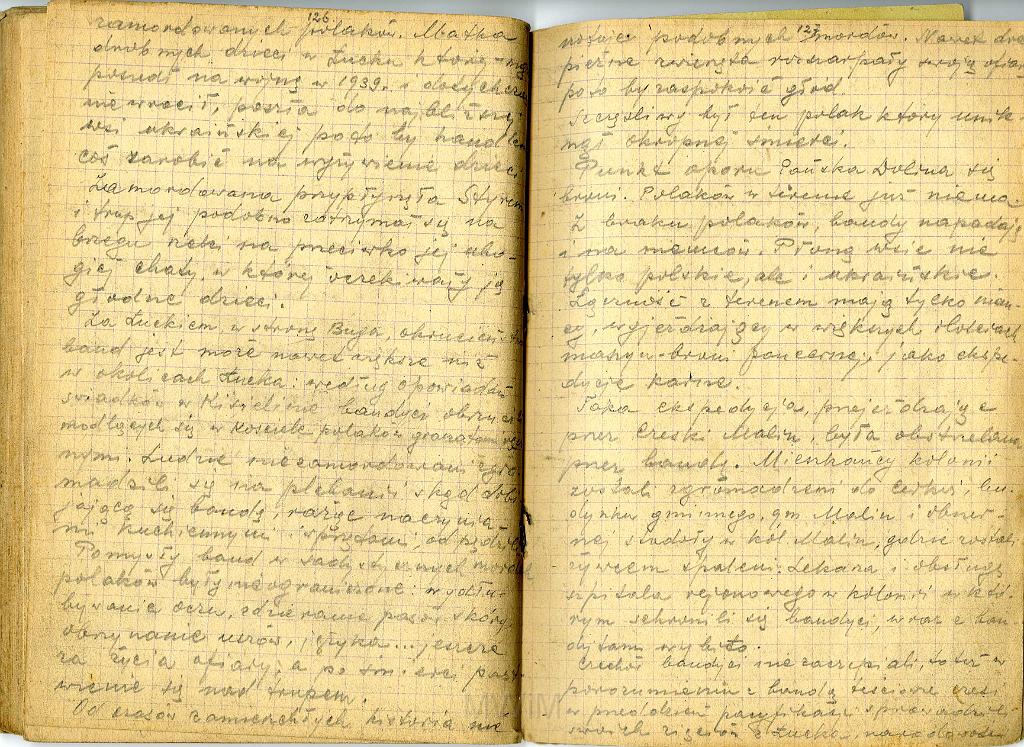 126.
zamordowanych polaków. Matka
drobnych dzieci w Łucku której mąż
poszedł na wojnę w 1939r. i dotychczas
nie wrócił, poszła do najbliższej
wsi ukraińskiej poto by handlem
coś zarobić na wyżywienie dzieci.
Zamordowana przypłynęła Styrem
i trup jej podobno zatrzymał się na
brzegu rzeki na przeciwko jej ubo-
giej chaty, w której oczekiwały ją
głodne dzieci.
Za Łuckiem, w stronę Buga, okrucieństwo
band jest może nawet większe niż
w okolicach Łucka. według opowiadań
świadków w Kisielinie bandyci obrzucili
modlących się w kościele polaków granatami ręcz-
nymi. Ludzie niezamordowani zgro-
madzili się na plebanii skąd dobi-
jającą się bandę, rażąc naczynia-
mi kuchennymi i sprzętami, odpędzili.
Pomysły band w sadystycznych mordach
polaków były nieograniczone: wydłu-
bywanie oczu, zdzieranie pasów skóry,
obrzynanie uszów, języka... jeszcze
za życia ofiary, a po śmierci past-
wienie się nad trupem.
Od czasów zamierzchłych historia nie
127.
notuje podobnych mordów. Nawet dra-
pieżne zwierzęta rozszarpały swoją ofiarę
poto by zaspokoić głód.
Szczęśliwy był ten polak który unik-
nął okropnej śmierci.
Punkt oporu Pańska Dolina się
broni. Polaków w terenie już niema
Z braku polaków, bandy napadają
i na niemców. Płoną wsie nie
tylko polskie, ale i ukraińskie.
Łączność z terenem mają tylko niem-
cy, wyjeżdżający w większych ilościach
maszyn broni pancernej, jako ekspe-
dycje karne.
Taka ekspedycja, przejeżdżając
przez Czeski Malin, była obstrzelana
przez bandy. Mieszkańcy kolonii
zostali zgromadzeni do cerkwi, bu-
dynku gminnego, gm Malin i obszer-
nej stodoły w kol. Malin, gdzie zostali
żywcem spaleni. Lekarza i obsługę
szpitala rejonowego w kolonii w któ-
rym schronili się bandyci, wraz z ban-
dytami wybito.
Czechów bandyci nie zaczepiali, to też w
porozumieniu z bandą teściowie czesi
w przeddzień pacyfikacji sprowadzili
swoich zięciów z Łucka, narodowości